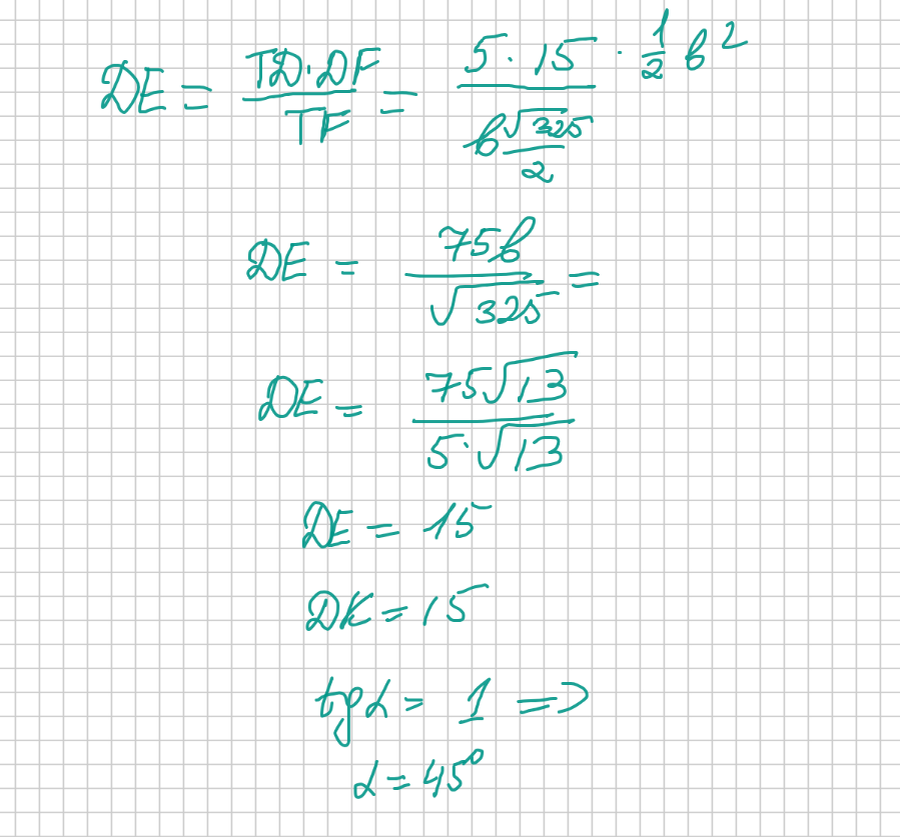 DE = TD·DF / TF = 5·15 / (b √325 / 2) · 1/2 b²
DE = 75b / √325 =
DE = 75√13 / 5·√13
DE = 15
DK = 15
tg α = 1 =>
α = 45°